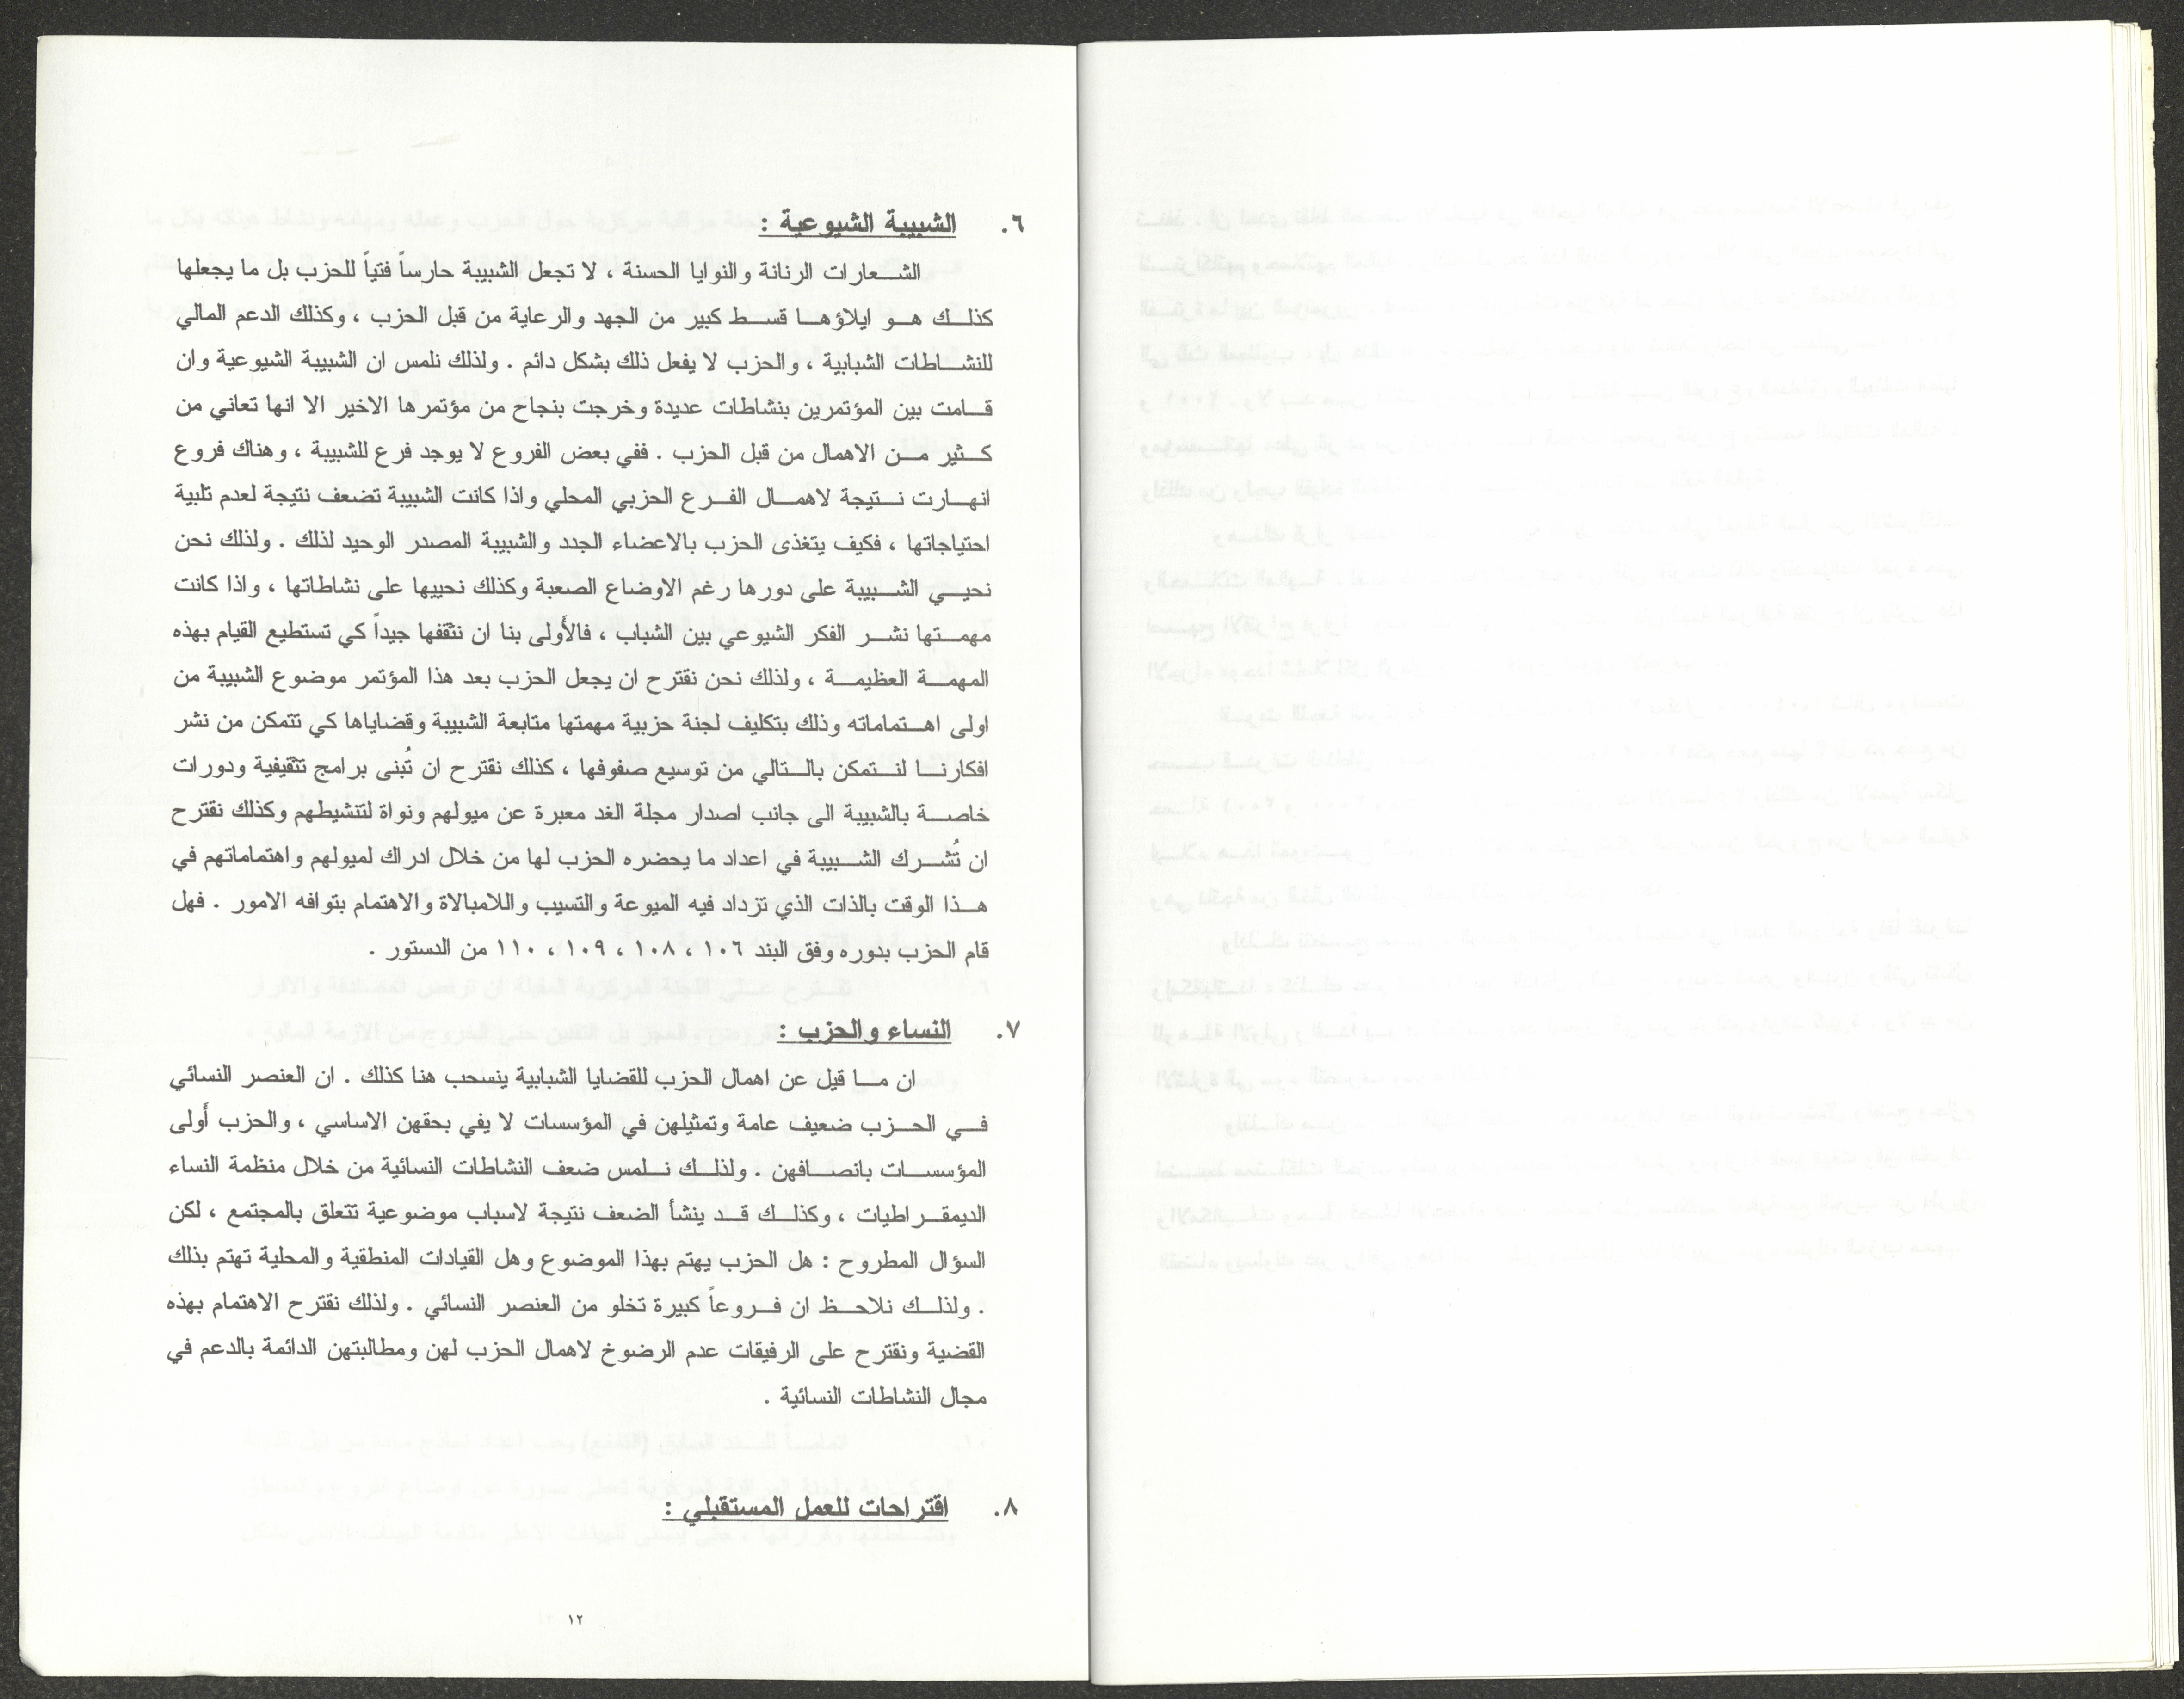 ٦. الشبيبة الشيوعية :
الشعارات الرنانة والنوايا الحسنة ، لا تجعل الشبيبة حارساً فتياً للحزب بل ما يجعلها
كذلك هو ايلاؤها قسط كبير من الجهد والرعاية من قبل الحزب ، وكذلك الدعم المالي
للنشاطات الشبابية ، والحزب لا يفعل ذلك بشكل دائم . ولذلك نلمس ان الشبيبة الشيوعية وان
قامت بين المؤتمرين بنشاطات عديدة وخرجت بنجاح من مؤتمرها الاخير الا انها تعاني من
كثير من الاهمال من قبل الحزب . ففي بعض الفروع لا يوجد فرع للشبيبة ، وهناك فروع
انهارت نتيجة لاهمال الفرع الحزبي المحلي واذا كانت الشبيبة تضعف نتيجة لعدم تلبية
احتياجاتها ، فكيف يتغذى الحزب بالاعضاء الجدد والشبيبة المصدر الوحيد لذلك . ولذلك نحن
نحيي الشبيبة على دورها رغم الاوضاع الصعبة وكذلك نحييها على نشاطاتها ، واذا كانت
مهمتها نشر الفكر الشيوعي بين الشباب ، فالأولى بنا ان نثقفها جيداً كي تستطيع القيام بهذه
المهمة العظيمة ، ولذلك نحن نقترح ان يجعل الحزب بعد هذا المؤتمر موضوع الشبيبة من
اولى اهتماماته وذلك بتكليف لجنة حزبية مهمتها متابعة الشبيبة وقضاياها كي تتمكن من نشر
افكارنا لنتمكن بالتالي من توسيع صفوفها ، كذلك نقترح ان تُبنى برامج تثقيفية ودورات
خاصة بالشبيبة الى جانب اصدار مجلة الغد معبرة عن ميولهم ونواة لتنشيطهم وكذلك نقترح
ان تُشرك الشبيبة في اعداد ما يحضره الحزب لها من خلال ادراك لميولهم واهتماماتهم في
هذا الوقت بالذات الذي تزداد فيه الميوعة والتسيب واللامبالاة والاهتمام بتوافه الامور . فهل
قام الحزب بدوره وفق البند ١٠٦ ، ١٠٨ ، ١٠٩ ، ١١٠ من الدستور .
٧. النساء والحزب :
ان ما قيل عن اهمال الحزب للقضايا الشبابية ينسحب هنا كذلك . ان العنصر النسائي
في الحزب ضعيف عامة وتمثيلهن في المؤسسات لا يفي بحقهن الاساسي ، والحزب أولى
المؤسسات بانصافهن . ولذلك نلمس ضعف النشاطات النسائية من خلال منظمة النساء
الديمقراطيات ، وكذلك قد ينشأ الضعف نتيجة لاسباب موضوعية تتعلق بالمجتمع ، لكن
السؤال المطروح : هل الحزب يهتم بهذا الموضوع وهل القيادات المنطقية والمحلية تهتم بذلك
. ولذلك نلاحظ ان فروعاً كبيرة تخلو من العنصر النسائي . ولذلك نقترح الاهتمام بهذه
القضية ونقترح على الرفيقات عدم الرضوخ لاهمال الحزب لهن ومطالبتهن الدائمة بالدعم في
مجال النشاطات النسائية .
٨. اقتراحات للعمل المستقبلي :
١٢